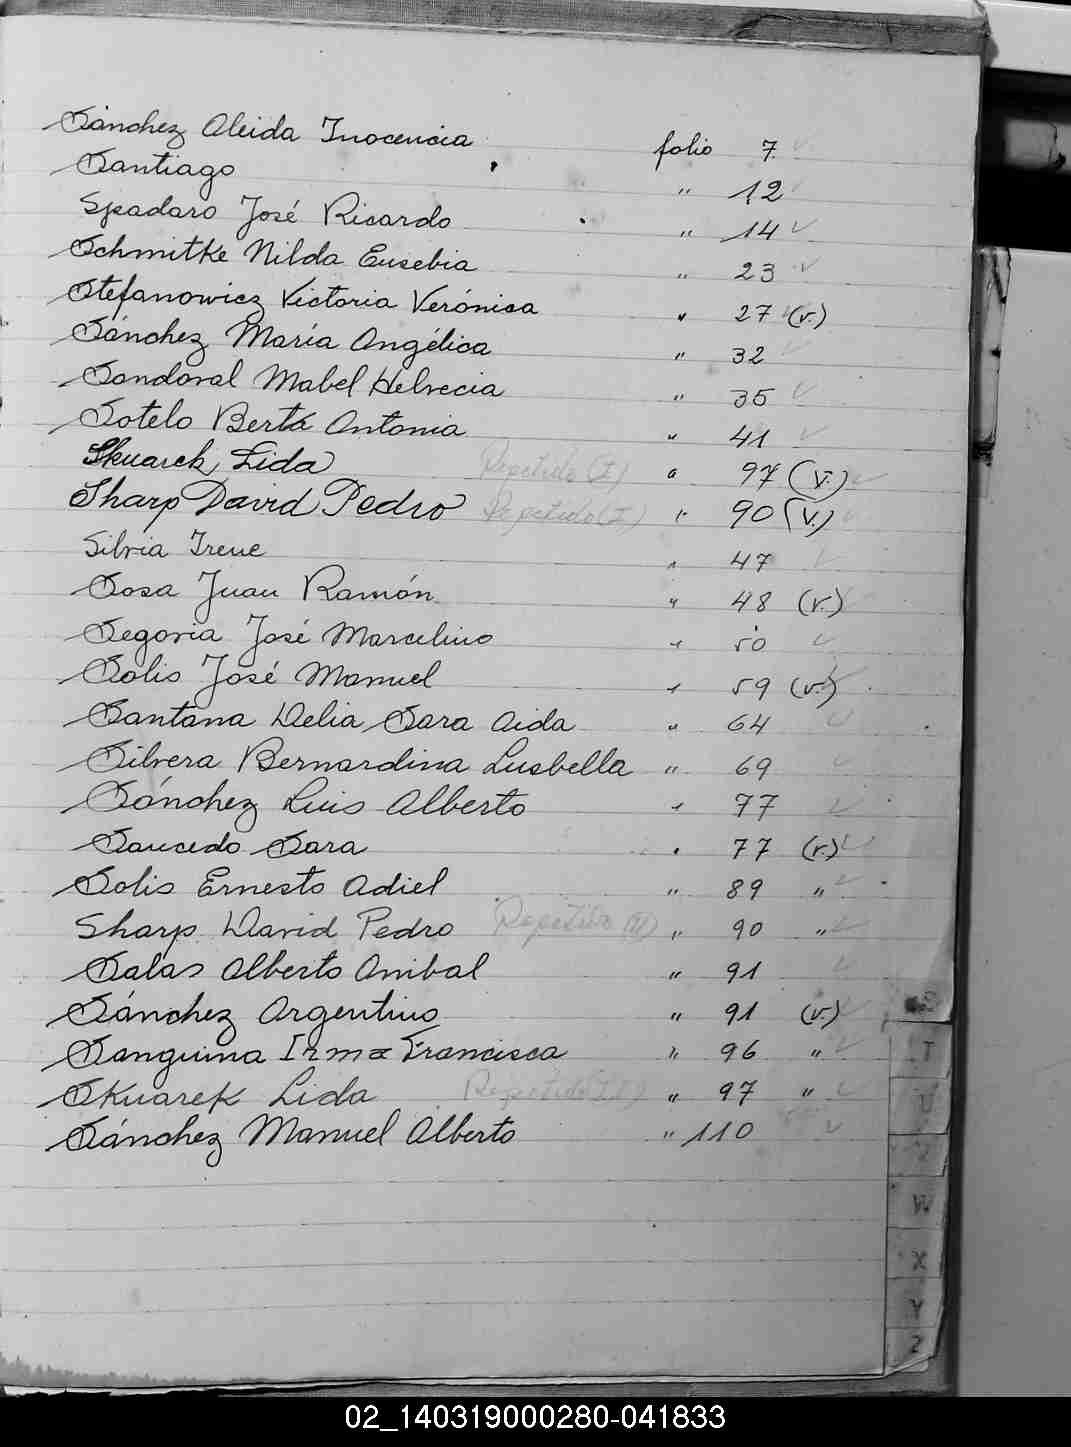 Sánchez Aleida Inocencia folio 7
Santiago " 12
Spadaro José Ricardo " 14
Schmitke Nilda Eusebia " 23
Stefanowicz Victoria Verónica " 27 (v.)
Sánchez María Angélica " 32
Sandoval Mabel Helvecia " 35
Sotelo Berta Antonia " 41
Skuarek Lida Repetido (I) " 97 (v.)
Sharp David Pedro Repetido (I) " 90 (v.)
Silvia Irene " 47
Sosa Juan Ramón " 48 (v.)
Segovia José Marcelino " 50
Solis José Manuel " 59 (v.)
Santana Delia Sara Aida " 64
Silvera Bernardina Lusbella " 69
Sánchez Luis Alberto " 77
Saucedo Sara " 77 (v.)
Solis Ernesto Adiel " 89 "
Sharp David Pedro Repetido (II) " 90 "
Salas Alberto Anibal " 91
Sánchez Argentino " 91 (v.)
Sanguina Irma Francisca " 96 "
Skuarek Lida Repetido (II) " 97 "
Sánchez Manuel Alberto " 110
S
T
U
V
W
X
Y
Z
02_140319000280-041833